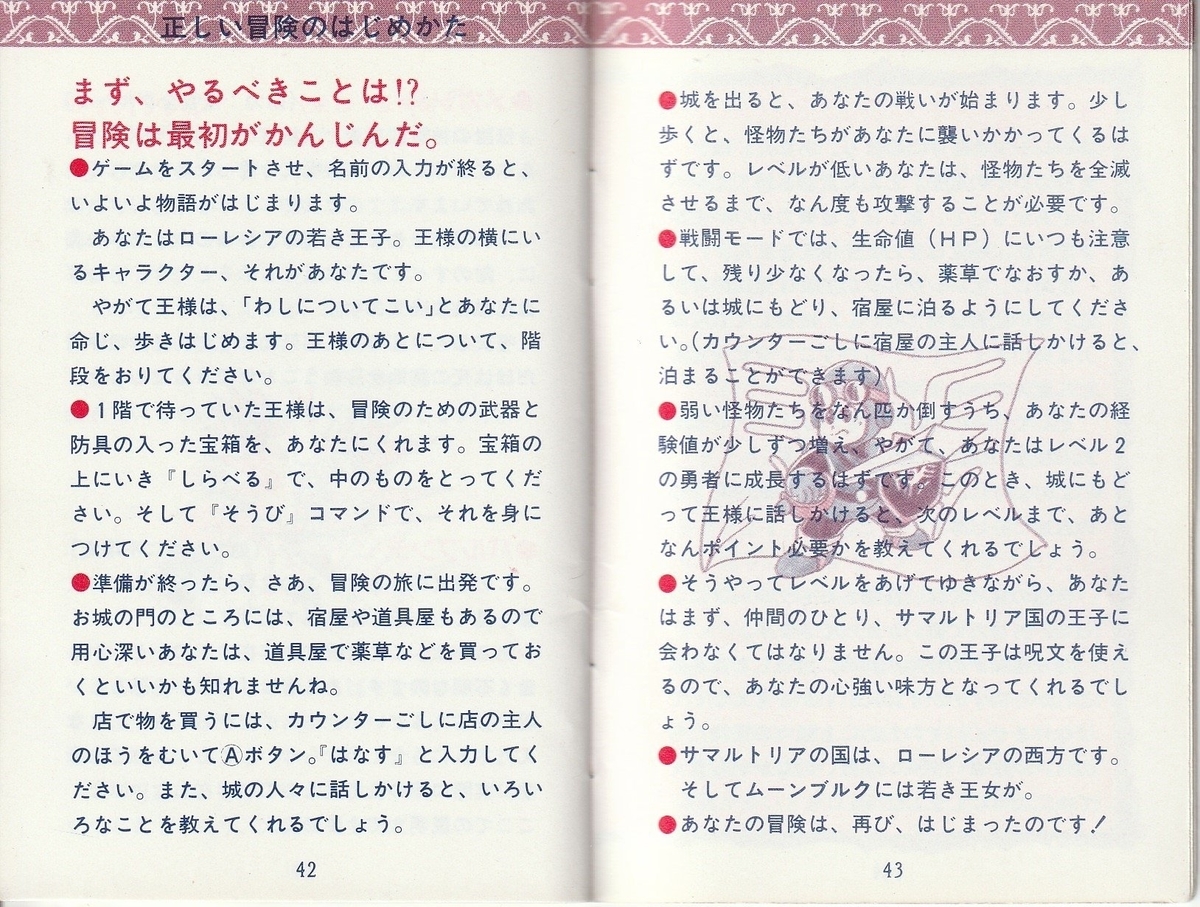 正しい冒険のはじめかた
まず、やるべきことは!?
冒険は最初がかんじんだ。
●ゲームをスタートさせ、名前の入力が終ると、
いよいよ物語がはじまります。
　あなたはローレシアの若き王子。王様の横にい
るキャラクター、それがあなたです。
　やがて王様は、「わしについてこい」とあなたに
命じ、歩きはじめます。王様のあとについて、階
段をおりてください。
●1階で待っていた王様は、冒険のための武器と
防具の入った宝箱を、あなたにくれます。宝箱の
上にいき『しらべる』で、中のものをとってくだ
さい。そして『そうび』コマンドで、それを身に
つけてください。
●準備が終ったら、さあ、冒険の旅に出発です。
お城の門のところには、宿屋や道具屋もあるので
用心深いあなたは、道具屋で薬草などを買ってお
くといいかも知れませんね。
　店で物を買うには、カウンターごしに店の主人
のほうをむいてⒶボタン。『はなす』と入力してく
ださい。また、城の人々に話しかけると、いろい
ろなことを教えてくれるでしょう。
42
●城を出ると、あなたの戦いが始まります。少し
歩くと、怪物たちがあなたに襲いかかってくるは
ずです。レベルが低いあなたは、怪物たちを全滅
させるまで、なん度も攻撃することが必要です。
●戦闘モードでは、生命値（HP）にいつも注意
して、残り少なくなったら、薬草でなおすか、あ
るいは城にもどり、宿屋に泊るようにしてくださ
い。(カウンターごしに宿屋の主人に話しかけると、
泊まることができます)
●弱い怪物たちをなん匹か倒すうち、あなたの経
験値が少しずつ増え、やがて、あなたはレベル2
の勇者に成長するはずです。このとき、城にもど
って王様に話しかけると、次のレベルまで、あと
なんポイント必要かを教えてくれるでしょう。
●そうやってレベルをあげてゆきながら、あなた
はまず、仲間のひとり、サマルトリア国の王子に
会わなくてはなりません。この王子は呪文を使え
るので、あなたの心強い味方となってくれるでし
ょう。
●サマルトリアの国は、ローレシアの西方です。
　そしてムーンブルクには若き王女が。
●あなたの冒険は、再び、はじまったのです!
43